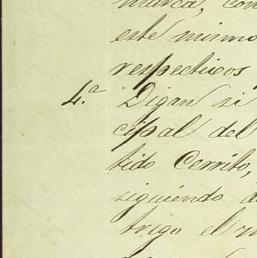 marca, con
este mismo
respectivos
4.ª Digan si
cipal del
tido Cerrito,
siguiendo a
trigo el